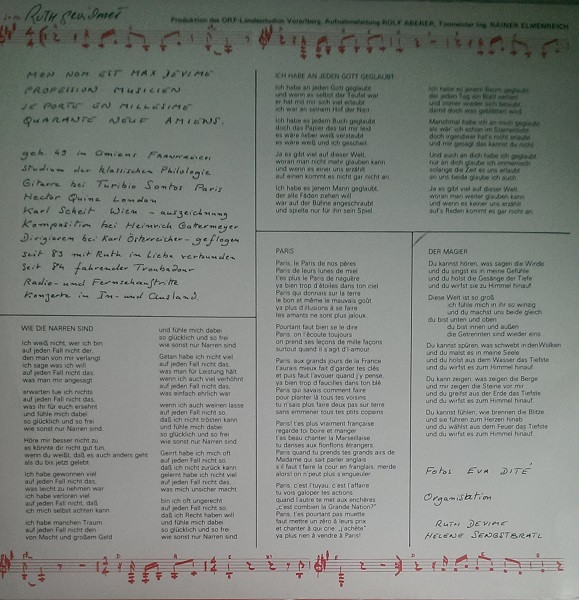 Ruth gewidmet
Produktion des ORF-Landesstudios Vorarlberg, Aufnahmeleitung ROLF ABERER, Tonmeister Ing. RAINER ELMENREICH
MON NOM EST MAX DEVIME
PROFESSION MUSICIEN
JE PORTE EN MILLESIME
QUARANTE NEUF AMIENS.
geb. 49 in Amiens FRANKREICH
Studium der klassischen Philologie
Gitarre bei Turibio Santos Paris
Hector Quine London
Karl Scheit Wien - auszeichnung
Komposition bei Heinrich Gattermeyer
Dirigieren bei Karl Österreicher - geflogen
seit 83 mit Ruth in Liebe verbunden
Seit 84 fahrender Troubadour
Radio- und Fernsehauftritte
Konzerte in In- und Ausland.
WIE DIE NARREN SIND
Ich weiß nicht, wer ich bin
auf jeden Fall nicht der,
den man von mir verlangt
ich sage was ich will
auf jeden Fall nicht das,
was man mir angesagt
erwarten tue ich nichts
auf jeden Fall nicht das,
was ihr für euch ersehnt
und fühle mich dabei
so glücklich und so frei
wie sonst nur Narren sind.
Höre mir besser nicht zu
es könnte dir nicht gut tun,
wenn du weißt, daß es auch anders geht
als du bis jetzt gelebt.
Ich habe gewonnen viel
auf jeden Fall nicht das,
was leicht zu nehmen war
ich habe verloren viel
auf jeden Fall nicht, daß
ich mich selbst achten kann
ich habe manchen Traum
auf jeden Fall nicht den
von Macht und großem Geld
und fühle mich dabei
so glücklich und so frei
wie sonst nur Narren sind
Getan habe ich nicht viel
auf jeden Fall nicht das,
was man für Leistung hält
wenn ich auch viel verhöhnt
auf jeden Fall nicht das,
was einfach ehrlich war
wenn ich auch weinen lasse
auf jeden Fall nicht so,
daß ich nicht trösten kann
und fühle mich dabei
so glücklich und so frei
wie sonst nur Narren sind.
Geirrt habe ich mich oft
auf jeden Fall nicht so,
daß ich nicht zurück kann
gelernt habe ich nicht viel
auf jeden Fall nicht das,
was mich unsicher macht
bin ich oft ungerecht
auf jeden Fall nicht so,
daß ich Recht haben will
und fühle mich dabei
so glücklich und so frei
wie sonst nur Narren sind.
ICH HABE AN JEDEN GOTT GEGLAUBT
Ich habe an jeden Gott geglaubt
und wenn es selbst der Teufel war
er hat mit mir sich viel erlaubt
ich war an seinem Hof der Narr.
Ich habe es jedem Buch geglaubt
doch das Papier das tat mir leid
es wäre lieber weiß verstaubt
es wäre weiß und ich gescheit.
Ja es gibt viel auf dieser Welt,
woran man nicht mehr glauben kann
und wenn es einer uns erzählt
auf einen kommt es nicht gar nicht an.
Ich habe es jenem Mann geglaubt,
der alle Fäden ziehen will
war auf der Bühne angeschraubt
und spielte nur für ihn sein Spiel.
Ich habe es jenem Baum geglaubt,
der jeden Tag ein Blatt verliert
und immer wieder sich belaubt,
damit doch was geblättert wird.
Manchmal habe ich an mich geglaubt
als wär' ich schon im Sternenlicht
doch irgendwer hat's nicht erlaubt
und mir gesagt das kannst du nicht
Und auch an dich habe ich geglaubt
nur an dich glaube ich immernoch
solange die Zeit es uns erlaubt
an uns beide glaube ich auch.
Ja es gibt viel auf dieser Welt,
woran man weiter glauben kann
und wenn es keiner uns erzählt
auf's Reden kommt es gar nicht an.
PARIS
Paris, le Paris de nos pères
Paris de leurs lunes de miel
t'es plus le Paris de naguère
ya bien trop d'étoiles dans ton ciel
Paris qui donnais sur la terre
le bon et même le mauvais goût
ya plus d'illusions à se faire
les amants ne sont plus jaloux.
Pourtant faut bien se le dire
Paris, on t'écoute toujours
on prend ses leçons de mille façons
surtout quand il s'agit d'l'amour.
Paris, aux grands jours de la France
t'aurais mieux fait d'garder tes clés
et puis faut l'avouer quand j'y pense,
ya bien trop d'faucilles dans ton blé
Paris qui savais comment faire
pour planter là tous tes voisins
tu n'sais plus faire deux pas sur terre
sans emmener tous tes ptits copains
Paris! t'es plus vraiment française
regarde toi boire et manger
t'as beau chanter la Marseillaise
tu danses aux flonflons étrangers.
Paris quand tu prends tes grands airs de
Madame qui sait parler anglais
s'il faut t'faire la cour en franglais, merde
alors! on n'peut plus s'engueuler.
Paris, c'est l'tuyau, c'est l'affaire
tu vois galoper tes actions
quand l'autre te met aux enchères
„c'est combien la Grande Nation?"
Paris, t'es pourtant pas muette
faut mettre un zéro à leurs prix
et chanter à qui crie, „j'achète"
ya plus rien à vendre à Paris!
DER MAGIER
Du kannst hören, was sagen die Winde
und du singst es in meine Gefühle
und du holst die Gesänge der Tiefe
und du wirfst sie zu Himmel hinauf.
Diese Welt ist so groß
ich fühle mich in ihr so winzig
und du machst uns beide gleich.
du bist unten und oben
du bist innen und außen
die Getrennten sind wieder eins.
Du kannst spüren, was schwebt in den Wolken
und du malst es in meine Seele
und du holst aus dem Wasser das Tiefste
und du wirfst es zum Himmel hinauf.
Du kann zeigen, was zeigen die Berge
und mir zeigen die Steine vor mir
und du greifst aus der Erde das Tiefste
und du wirfst es zum Himmel hinauf.
Du kannst fühlen, wie brennen die Blitze
und sie führen zum Herzen hinab
und du wählst aus dem Feuer das Tiefste
und du wirfst es zum Himmel hinauf.
Fotos EVA DITÉ
Organisation
RUTH DEVIME
HELENE SENGSTBRATL